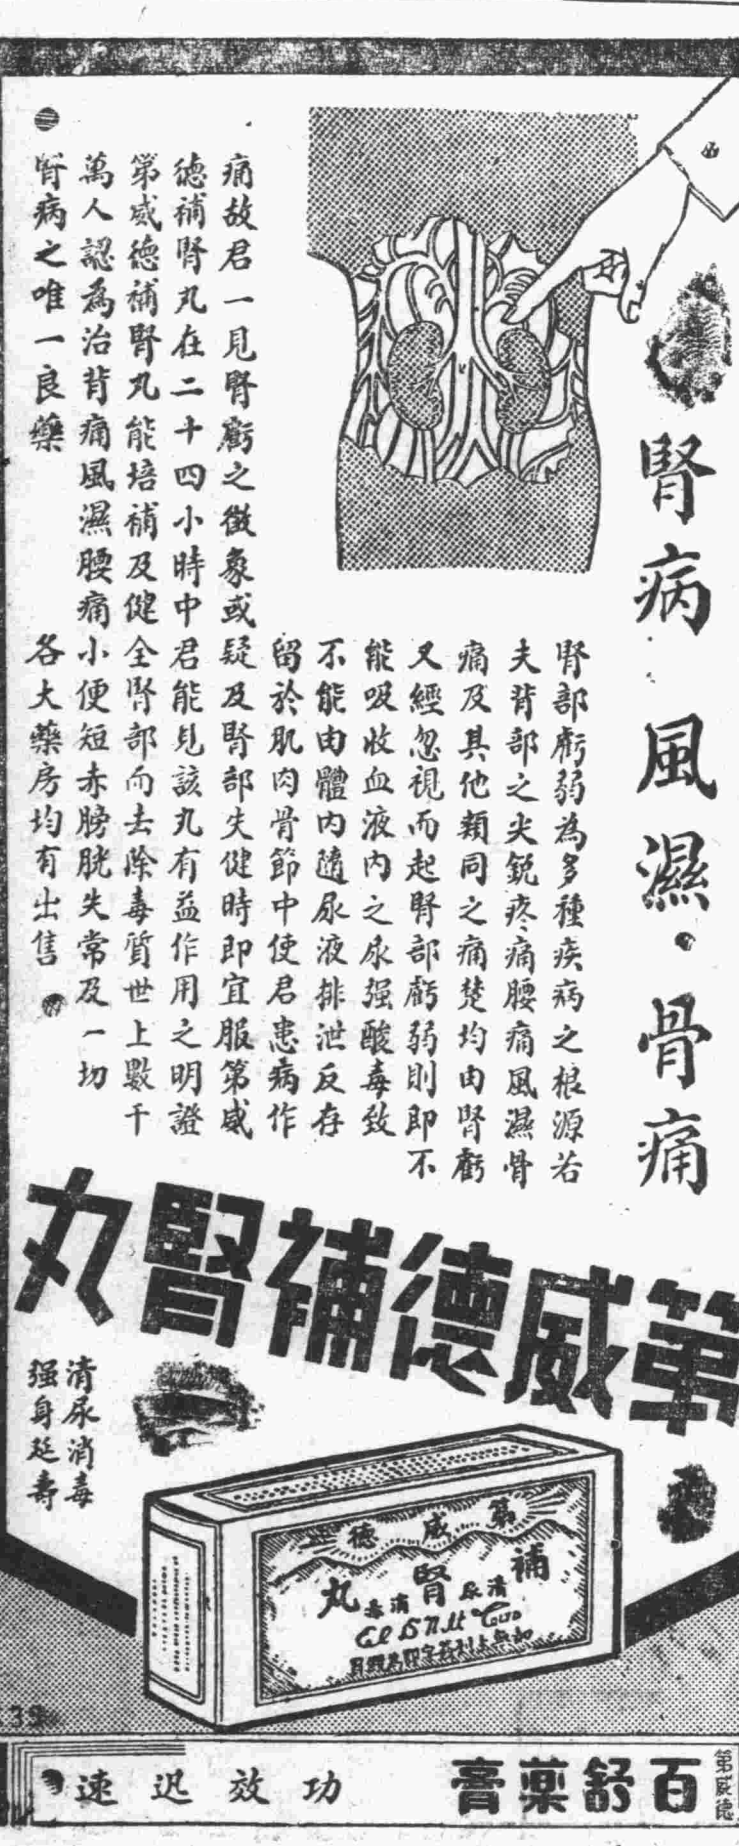 腎病 風濕・骨痛
腎部虧弱為多種疾病之根源若
夫背部之尖銳疼痛腰痛風濕骨
痛及其他類同之痛楚均由腎虧
又經忽視而起腎部虧弱則即不
能吸收血液內之尿强酸毒致
不能由體內隨尿液排泄反存
留於肌肉骨節中使君患病作
痛故君一見腎虧之徵象或疑及腎部失健時即宜服第威
德補腎丸在二十四小時中君能見該丸有益作用之明證
第威德補腎丸能培補及健全腎部而去除毒質世上數千
萬人認為治背痛風濕腰痛小便短赤膀胱失常及一切
腎病之唯一良藥 各大藥房均有出售
第威德補腎丸
清尿消毒
强身延壽
第威德
補腎丸
清尿消毒
第威德
百舒藥膏
功效迅速